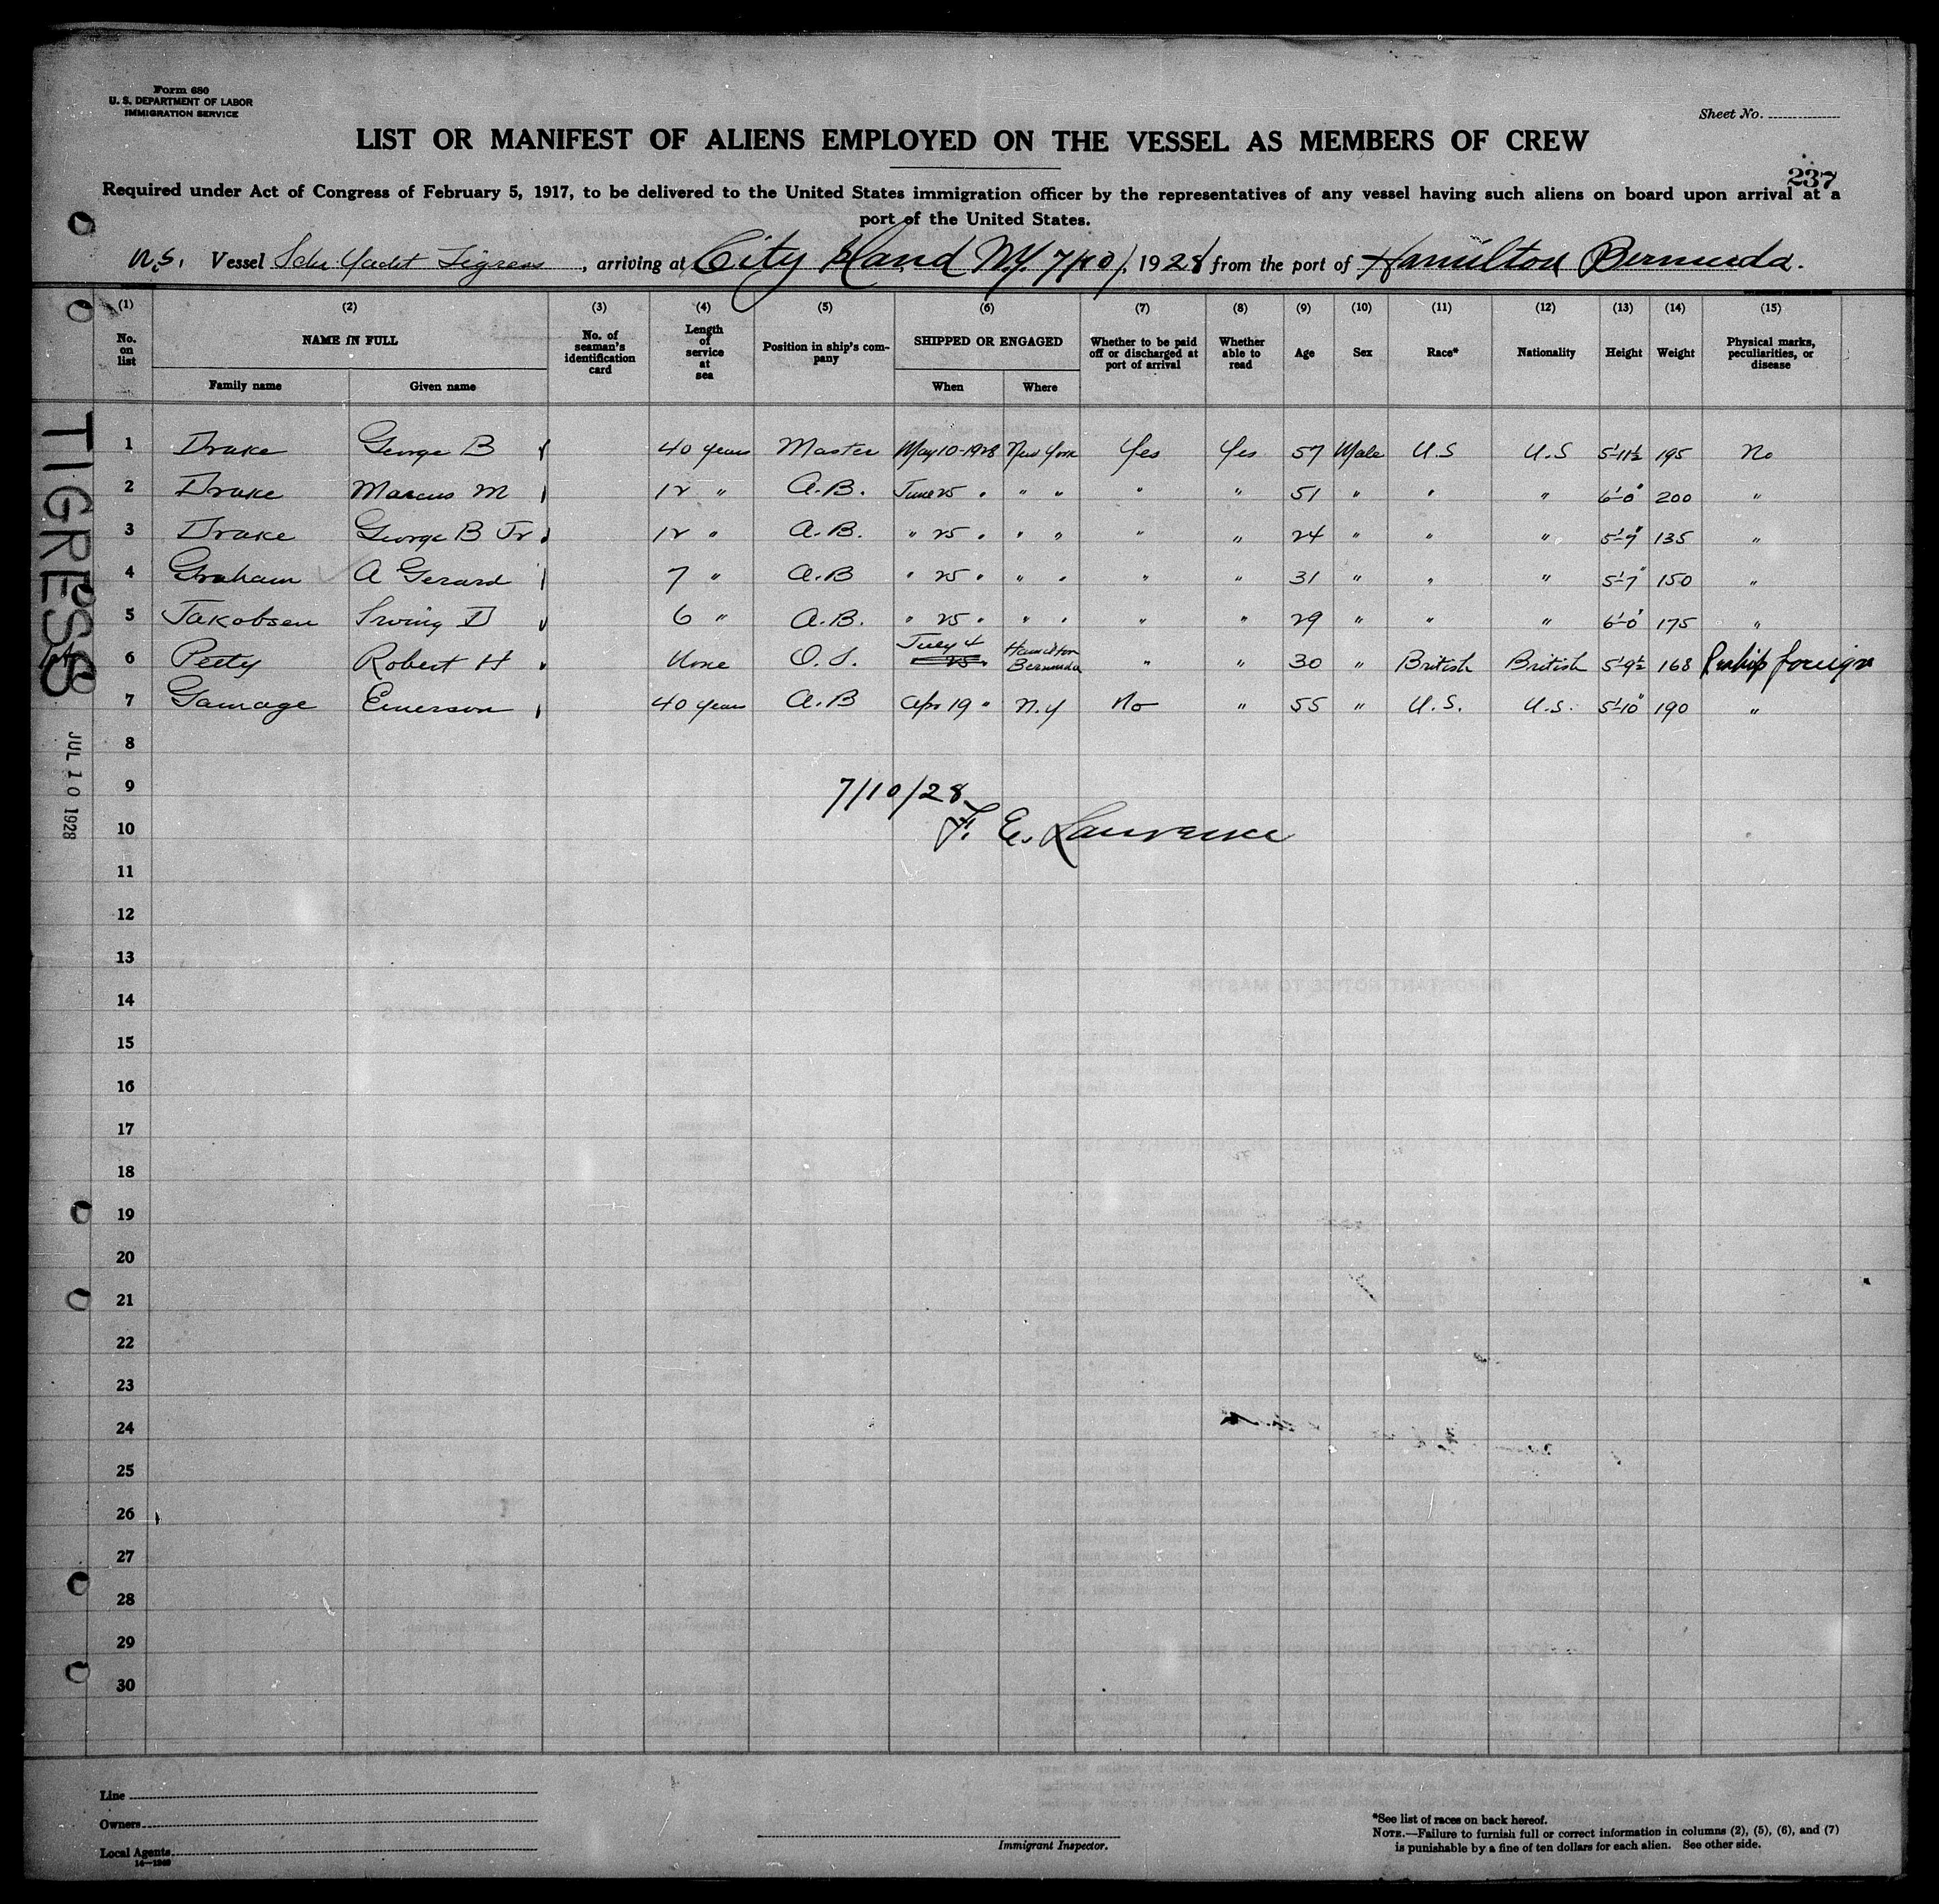 Form 680
U. S. DEPARTMENT OF LABOR
IMMIGRATION SERVICE
Sheet No.
LIST OR MANIFEST OF ALIENS EMPLOYED ON THE VESSEL AS MEMBERS OF CREW
237
Required under Act of Congress of February 5, 1917, to be delivered to the United States immigration officer by the representatives of any vessel having such aliens on board upon arrival at a
port of the United States.
Vessel Schr Yacht Tigress, arriving at City Island N.Y. 7/10/, 1928 from the port of Hamilton Bermuda.
(1) (2) (3) (4) (5) (6) (7) (8) (9) (10) (11) (12) (13) (14) (15)
No. on list NAME IN FULL No. of seaman's identification card Length of service at sea Position in ship's company SHIPPED OR ENGAGED Whether to be paid off or discharged at port of arrival Whether able to read Age Sex Race* Nationality Height Weight Physical marks, peculiarities, or disease
Family name Given name When Where
1 Drake George B 40 years Master May 10-1928 New York Yes Yes 57 Male U.S U.S 5'-11½ 195 No
2 Drake Marcus M 12 " A.B. June 25 " " " " " 51 " " " 6'-0" 200 "
3 Drake George B Jr 12 " A.B. " 25 " " " " " 24 " " " 135 "
4 Graham A Gerard 7 " A.B " 25 " " " " " 31 " " " 5'-7" 150 "
5 Jakobsen Irving D 6 " A.B. " 25 " " " " " 29 " " " 6'-0" 175 "
6 Peety Robert H None O.S. July 4 25 " Hamilton Bermuda " " 30 " British British 5'-9½ 168 foreign
7 Gamage Emerson 40 years A.B Apr 19 " N.Y No " 55 " U.S. U.S. 5'-10" 190 "
8
9
10
7/10/28
F. E. Lawrence
11
12
13
14
15
16
17
18
19
20
21
22
23
24
25
26
27
28
29
30
TIGRESS
JUL 10 1928
Line
Owners
Local Agents
14—1240
Immigrant Inspector.
*See list of races on back hereof.
NOTE.—Failure to furnish full or correct information in columns (2), (5), (6), and (7)
is punishable by a fine of ten dollars for each alien. See other side.